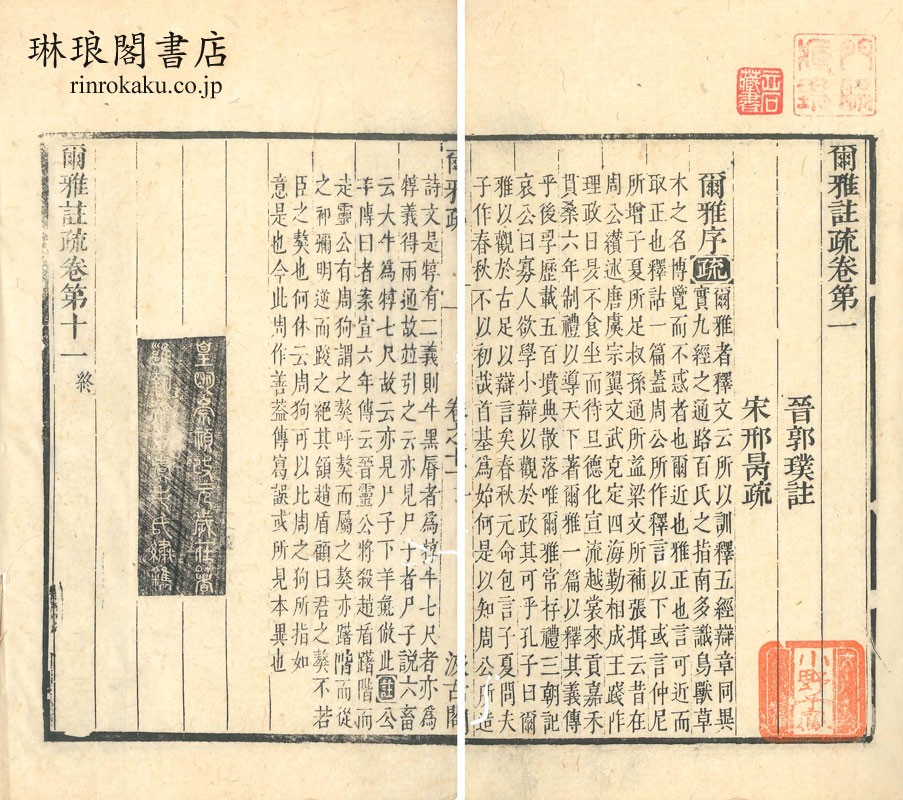 琳琅閣書店
rinrokaku.co.jp
爾雅註疏卷第一
晉郭璞註
宋邢昺疏
爾雅序疏爾雅者釋文云所以訓釋五經辯章同異
實九經之通路百氏之指南多識鳥獸草
木之名博覽而不惑者也爾近也雅正也言可近而
取正也釋詁一篇蓋周公所作釋言以下或言仲尼
所增子夏所足叔孫通所益梁文所補張揖云昔在
周公纘述唐虞宗翼文武克定四海勤相成王踐阼
理政日昃不食坐而待旦德化宣流越裳來貢嘉禾
貫桑六年制禮以導天下著爾雅一篇以釋其義傳
乎後孠歷載五百墳典散落唯爾雅常存禮三朝記
哀公曰寡人欲學小辯以觀於政其可乎孔子曰爾
雅以觀於古足以辯言矣春秋元命包言子夏問夫
子作春秋不以初哉首基爲始何是以知周公所造
爾雅疏
卷之十一
汲古閣
詩文是犉有二義則牛黑脣者爲犉牛七尺者亦爲
犉義得兩通故並引之云亦見尸子者尸子說六畜
云大牛爲犉七尺故云亦見尸子下羊彘倣此註公
羊傳曰者案宣六年傳云晉靈公將殺趙盾躇階而
走靈公有周狗謂之獒呼獒而屬之獒亦躇階而從
之祁彌明逆而踆之絕其頷趙盾顧曰君之獒不若
臣之獒也何休云周狗可以比周之狗所指如
意是也今此周作害蓋傳寫誤或所見本異也
皇明崇禎改元歲在著
爾雅註疏卷第十一
終